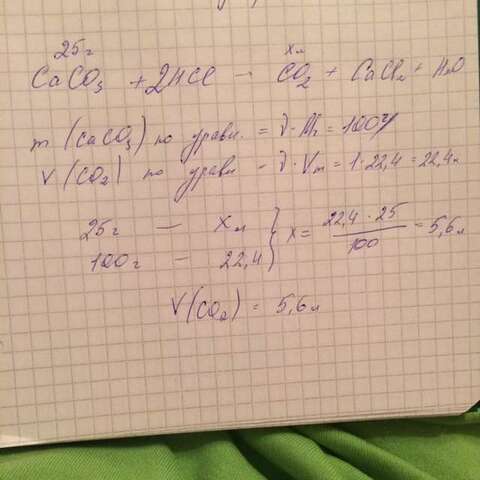 25г xл
CaCO₃ + 2HCl — CO₂ + CaCl₂ + H₂O
m (CaCO₃) по уравн. = ν·M = 100г
V (CO₂) по уравн – ν·Vm = 1·22,4 = 22,4л
25г — xл } x = 22,4·25 / 100 = 5,6л
100г – 22,4
V(CO₂) = 5,6л